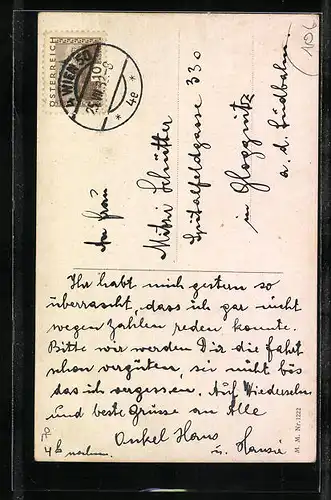 1106
ÖSTERREICH
WIEN 50
4e
An Frau
Mitzi Schütter
Spitalfeldgasse 330
in Gloggnitz
a. d. Südbahn.
Ihr habt mich gestern so
überrascht, dass ich gar nicht
wegen Zahlen reden konnte.
Bitte wir werden Dir die Fahrt
schon vergüten, sei nicht bös
das ich vergessen. Auf Wiedersehn
und beste Grüsse an Alle
Onkel Hans
u. Hansi
70
4h nachm.
M. M. Nr. 1222